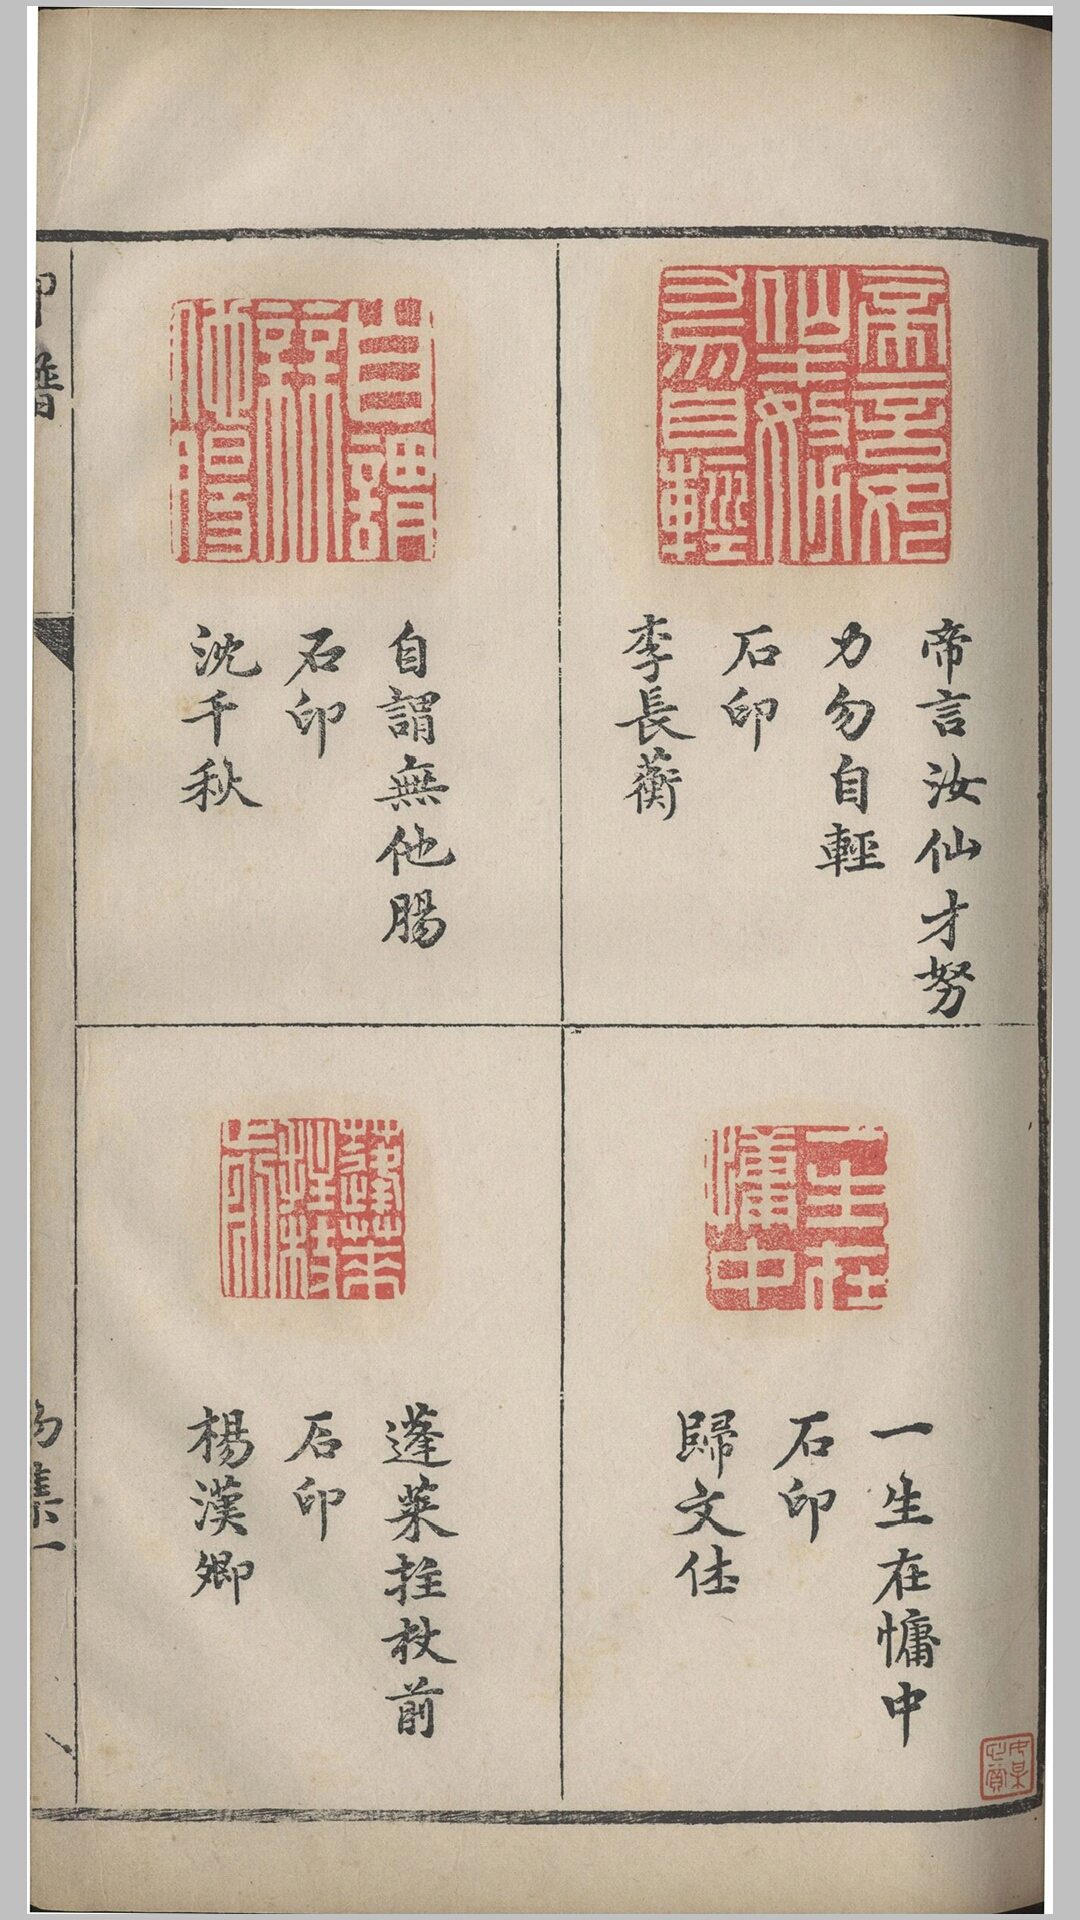 帝言汝仙才努
力勿自輕
石印
李長蘅
一生在慵中
石印
歸文休
自謂無他腸
石印
沈千秋
蓬萊拄杖前
石印
楊漢卿